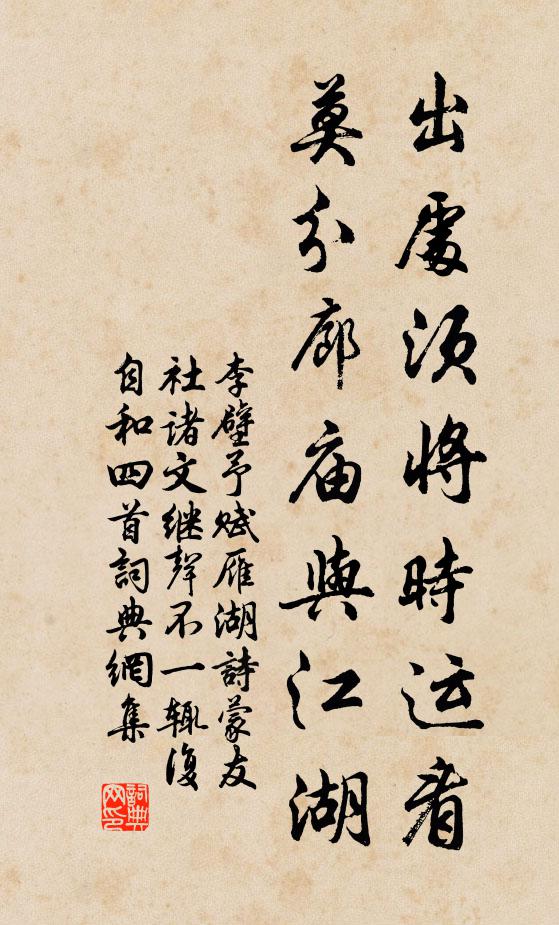 出處須將時运看
莫分廊庙與江湖
李壁予赋雁湖詩蒙友
社诸文继聲不一辄復
自和四首詞典網集
詞典网印